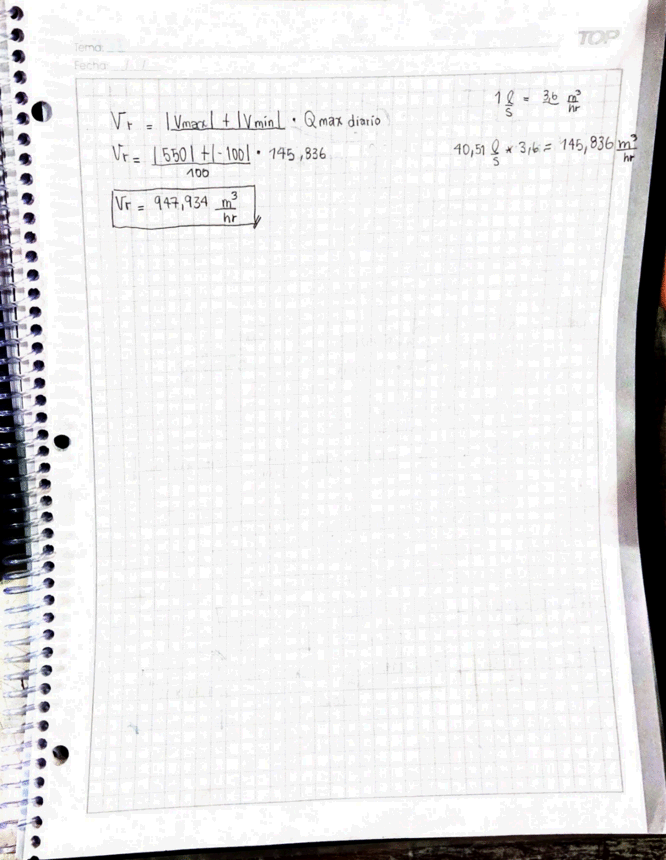 TOP
Tema:
Fecha: / /
1 l/s = 3,6 m³/hr
Vr = |Vmax| + |Vmin| · Q max diario
Vr = |550| + |-100| / 100 · 145,836
40,51 l/s * 3,6 = 145,836 m³/hr
Vr = 947,934 m³/hr